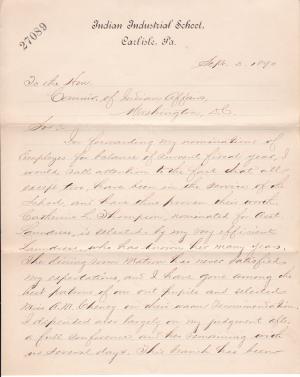 27089
Indian Industrial School,
Carlisle, Pa.
Sept. 3, 1890
To the Hon.
Commr. of Indian Affairs,
Washington, D.C.
Sir:
In forwarding my nominations of
Employes for balance of current fiscal year, I
would call attention to the fact that all
except two, have been in the service of the
School, and have thus proven their worth.
Catherine L. Thompson, nominated for Asst.
Laundress, is selected by my very efficient
Laundress, who has known her many years.
The dining room Matron has never satisfied
my expectations, and I have gone among the
best patrons of our out pupils and selected
Miss A. M. Cheney on their recommendation.
I depended also largely on my judgment after
a full conference and her remaining with
us several days. This branch has been